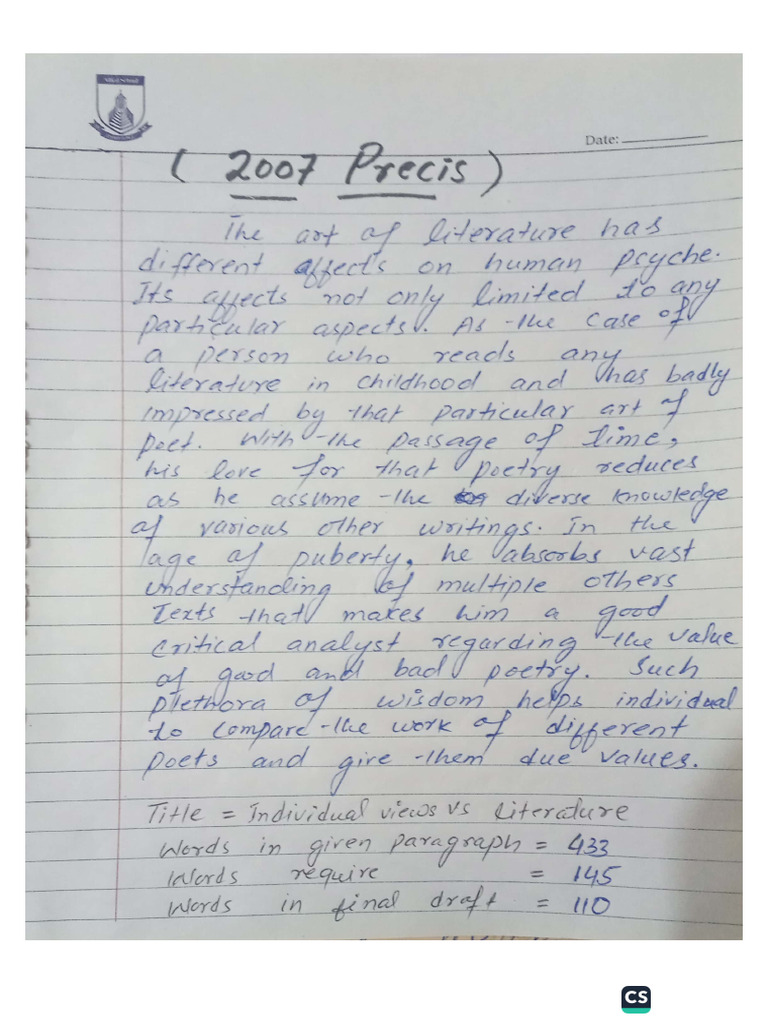 Date:
( 2007 Precis )
The art of literature has
different affects on human pscyche.
Its affects not only limited to any
particular aspects. As the case of
a person who reads any
literature in childhood and has badly
impressed by that particular art of
poet. With the passage of time,
his love for that poetry reduces
as he assume the diverse knowledge
of various other writings. In the
age of puberty, he absorbs vast
understanding of multiple others
texts that makes him a good
critical analyst regarding the value
of good and bad poetry. Such
plethora of wisdom helps individual
to compare the work of different
poets and give them due values.
Title = Individual views vs literature
Words in given paragraph = 433
Words require = 145
Words in final draft = 110
CS